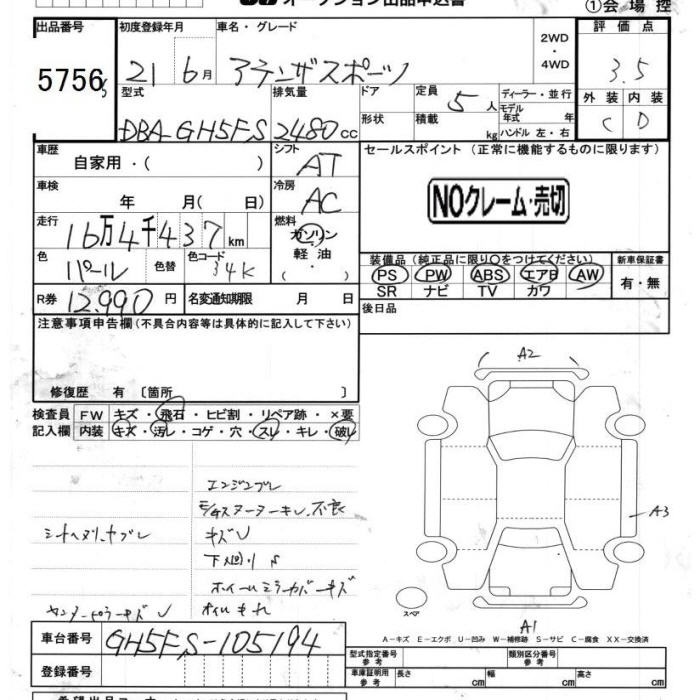 オークション出品申込書
①会場控
出品番号 初度登録年月 車名・グレード 2WD・4WD 評価点
5756 21 6月 アテンザスポーツ 3.5
型式 排気量 ドア形状 定員 5人 積載 kg ディーラー・並行 モデル年式 年 ハンドル 左・右 外装 内装
DBA-GH5FS 2480cc C D
車歴 自家用・( ) シフト AT セールスポイント (正常に機能するものに限ります)
車検 年 月(日) 冷房 AC NOクレーム・売切
走行 16万4千437km 燃料 ガソリン・軽油・( )
色 パール 色替 色コード 34K 装備品 (純正品に限り○をつけてください) 新車保証書
PS PW ABS エアB AW 有・無
SR ナビ TV カワ
R券 12,990円 名変通知期限 月 日 後日品
注意事項申告欄 (不具合内容等は具体的に記入して下さい)
修復歴 有 〔箇所 〕
検査員記入欄 FW キズ・飛石・ヒビ割・リペア跡・×要
内装 キズ・汚レ・コゲ・穴・スレ・キレ・破レ
エンジンブレ
キズ
下廻り
ホイールミラーカバーキズ
オイルもれ
A2
A3
A1
スペア
A-キズ E-エクボ U-凹み W-補修跡 S-サビ C-腐食 XX-交換済
車台番号 GH5FS-105194
登録番号
型式指定番号 参考 類別区分番号 参考
車庫証明用 参考 長さ cm 幅 cm 高さ cm
希望出品コーナー